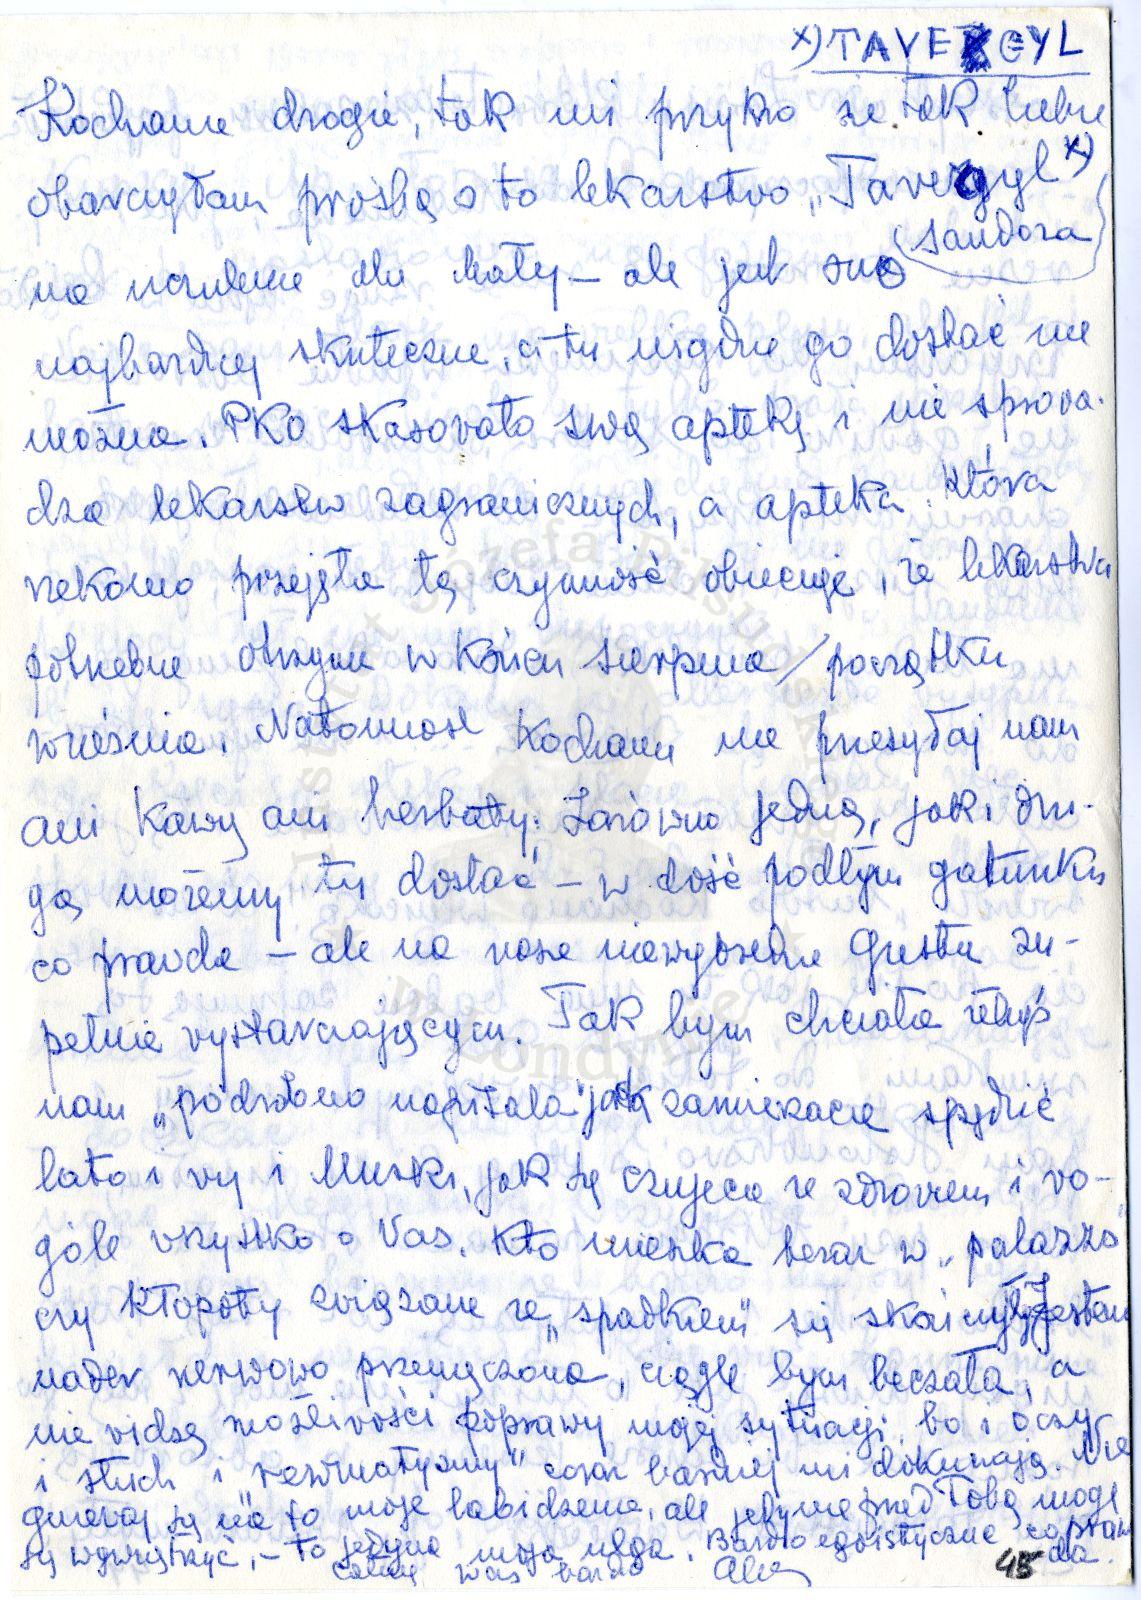 x) TAVEGYL
Kochanie drogie, tak mi przykro że tak Ciebie
obarczyłam prośbą o to lekarstwo „Tavegyl" x)
(Sandoza)
na uczulenie dla Maty – ale jest ono
najbardziej skuteczne, a tu nigdzie go dostać nie
można. PKO skasowało swą aptekę i nie sprowa-
dza lekarstw zagranicznych, a apteka która
rzekomo przejęła tę czynność obiecuje, że lekarstwa
potrzebne otrzyma w końcu sierpnia/początku
września. Natomiast Kochanie nie przesyłaj nam
ani kawy ani herbaty. Zarówno jedną, jak i dru-
gą możemy tu dostać – w dość podłym gatunku
co prawda – ale na nasze niewybredne gusta zu-
pełnie wystarczającym. Tak bym chciała żebyś
nam „podrobno napisała" jak zamierzacie spędzić
lato i wy i Muszki, jak się czujecie ze zdrowiem i wo-
góle wszystko o Was. Kto mieszka teraz w „palazzo"
czy kłopoty związane ze „spadkiem" się skończyły? Jestem
nader nerwowo przemęczona, ciągle bym beczała, a
nie widzę możliwości poprawy mojej sytuacji, bo i oczy
i słuch i "rewmatyzmy" coraz bardziej mi dokuczają. Nie
gniewaj się na to moje labidzenie, ale jedynie przed Tobą mogę
się wywnętrzyć, – to jedyna moja ulga. Bardzo egoistyczne co praw-
da.
Całuję was bardzo
45
Institut Józefa Piłsudskiego
w Londynie